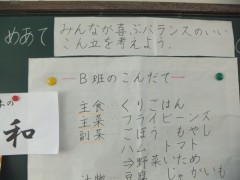 めあて
みんなが喜ぶバランスのいい
こん立を考えよう。
B班のこんだて
主食 くりごはん
主菜 フライビーンズ
副菜 ごぼう もやし
ハム トマト
⇒野菜いため
汁物 豆腐 じゃがいも
の
和